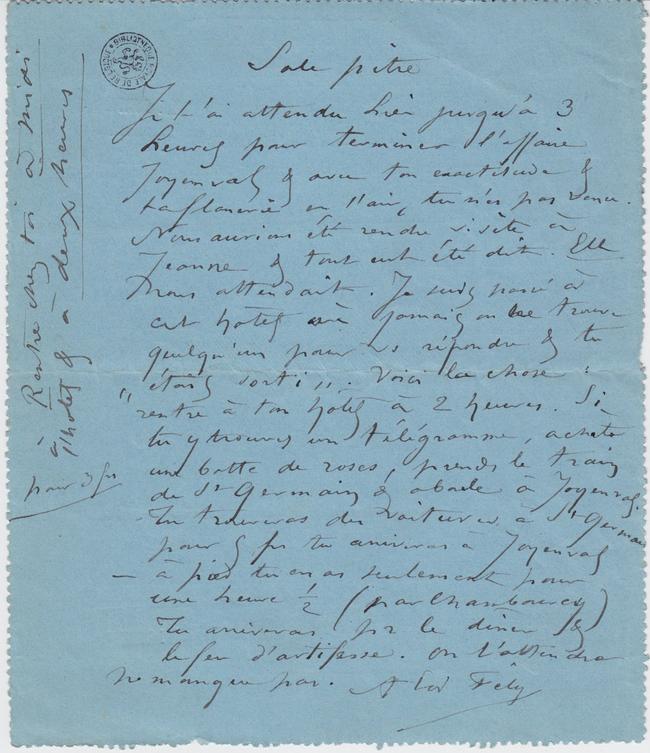 Sale pitre
Je t'ai attendu hier jusqu'à 3
heures pour terminer l'affaire
Joyenval & avec ton exactitude &
ta flanerie en l'air, tu n'es pas venu.
Nous aurions été rendre visite à
Jeanne & tout eut été dit. Elle
nous attendait. Je suis passé à
cet hotel où jamais on ne trouve
quelqu'un pour vs répondre & tu
étais sorti ". Voici la chose :
" rentre à ton hotel à 2 heures. Si
tu y trouves un télégramme, achète
une botte de roses, prends le train
de St Germain & aboule à Joyenval.
Tu trouveras des voitures à St Germain
pour 5 frs tu arriveras à Joyenval
– à pied tu en as seulement pour
une heure ½ (par Chambourcy)
Tu arriveras pr le diner &
le feu d'artifesse. on t'attendra
ne manque pas. A toi Fély
à Rentre chez toi à midi
à l'hotel & à deux heures
pour 3 frs
BIBLIOTHEQUE ROYALE DE BELGIQUE